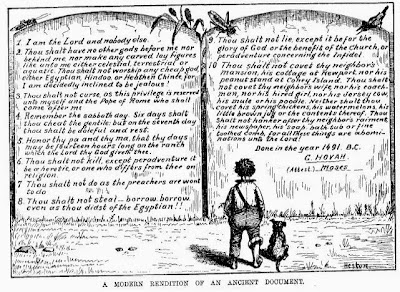 1. I am the Lord and nobody else.
2. Thou shalt have no other gods before me nor
behind me, nor make any carved joy figures
unto me either celestial, terrestrial or
aquatic. Thou shalt not worship any cheap god
either Egyptian, Hindoo or Heathen Chinee, for
I am decidedly inclined to be jealous.
3. Thou shalt not curse, as this privilege is reserved
unto myself and the Pope of Rome who shall
come after me
4. Remember the sabbath day. Six days shalt
thou cheat the gentile, but on the seventh day
thou shalt be doleful and rest.
5. Honor thy pa and thy ma, that thy days
may be fourteen hours long on the ranch
which the Lord thy God giveth thee.
6. Thou shalt not kill, except peradventure it
be a heretic, or one who differs from thee on
religion.
7 Thou shalt not do as the preachers are wont
to do
8. Thou shalt not steal — borrow, borrow
even as thou didst of the Egyptian!!
9 Thou shalt not lie, except it be for the
glory of God or the benefit of the Church, or
peradventure concerning the Infidel.
10 Thou shalt not covet thy neighbor's
mansion, his cottage at Newport, nor his
peanut stand at Coney Island. Thou shalt
not covet thy neighbor's wife, nor his coach-
man, nor his hired girl, nor his Jersey cow
his mule or his poodle. Neither shall thou
covet his spring chickens, his watermelons, his
little brown jug or the contents thereof. Thou
shalt not hanker after thy neighbor's raiment
his newspaper, his soap, bath tub or fine
toothed comb, for all these things are abomi-
nations unto the Lord.
Done in the year 1491. B.C.
G. HOVAH.
(Attest) MOSES
HESTON
A MODERN RENDITION OF AN ANCIENT DOCUMENT.